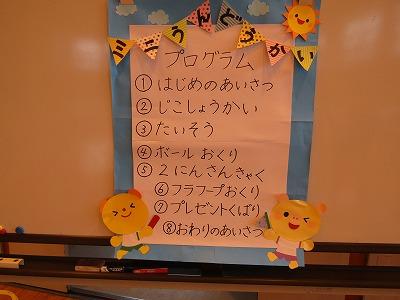 ミニうんどうかい
プログラム
①はじめのあいさつ
②じこしょうかい
③たいそう
④ボールおくり
⑤2にんさんきゃく
⑥フラフープおくり
⑦プレゼントくばり
⑧おわりのあいさつ